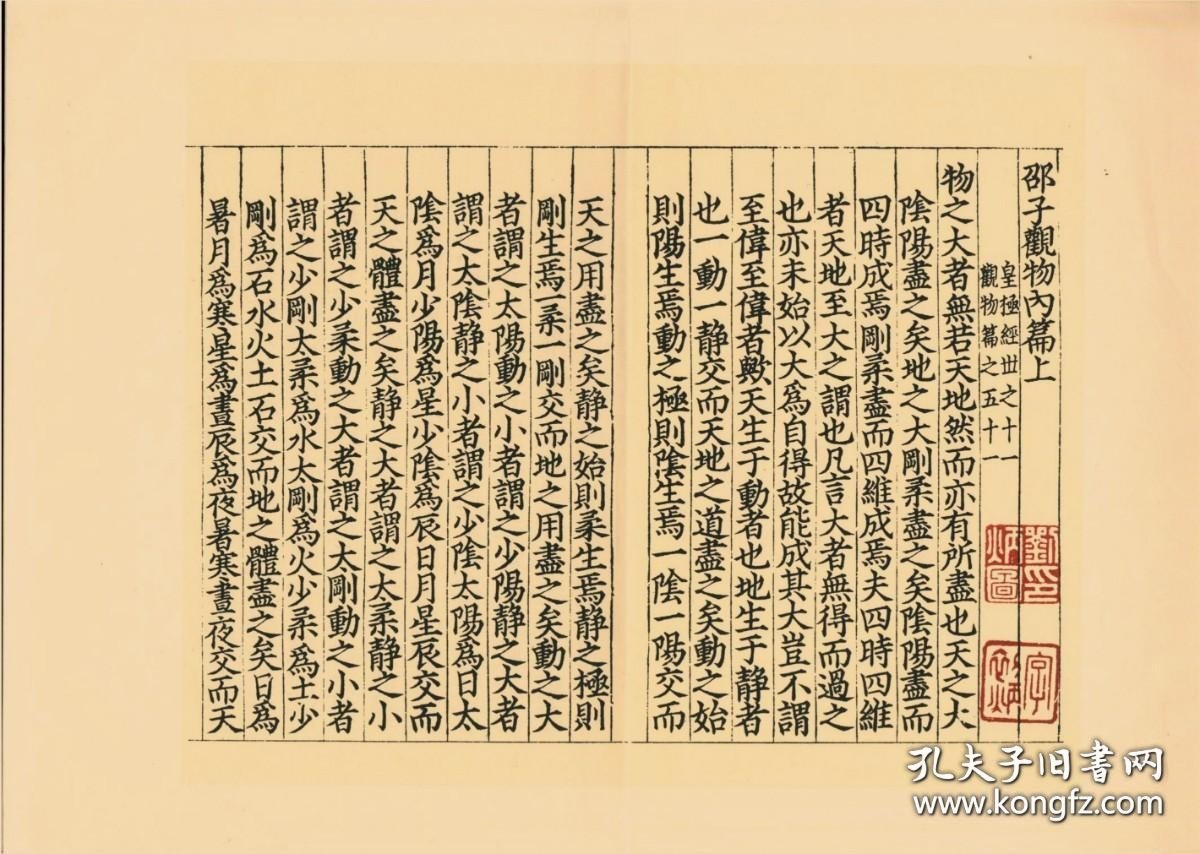 邵子觀物內篇上
皇極經世之十一
觀物篇之五十一
物之大者無若天地然而亦有所盡也天之大
陰陽盡之矣地之大剛柔盡之矣陰陽盡而
四時成焉剛柔盡而四維成焉夫四時四維
者天地至大之謂也凡言大者無得而過之
也亦未始以大為自得故能成其大豈不謂
至偉至偉者歟天生于動者也地生于静者
也一動一静交而天地之道盡之矣動之始
則陽生焉動之極則陰生焉一陰一陽交而
天之用盡之矣静之始則柔生焉静之極則
剛生焉一柔一剛交而地之用盡之矣動之大
者謂之太陽動之小者謂之少陽静之大者
謂之太陰静之小者謂之少陰太陽為日太
陰為月少陽為星少陰為辰日月星辰交而
天之體盡之矣静之大者謂之太柔静之小
者謂之少柔動之大者謂之太剛動之小者
謂之少剛太柔為水太剛為火少柔為土少
剛為石水火土石交而地之體盡之矣日為
暑月為寒星為晝辰為夜暑寒晝夜交而天
孔夫子旧书网
www.kongfz.com